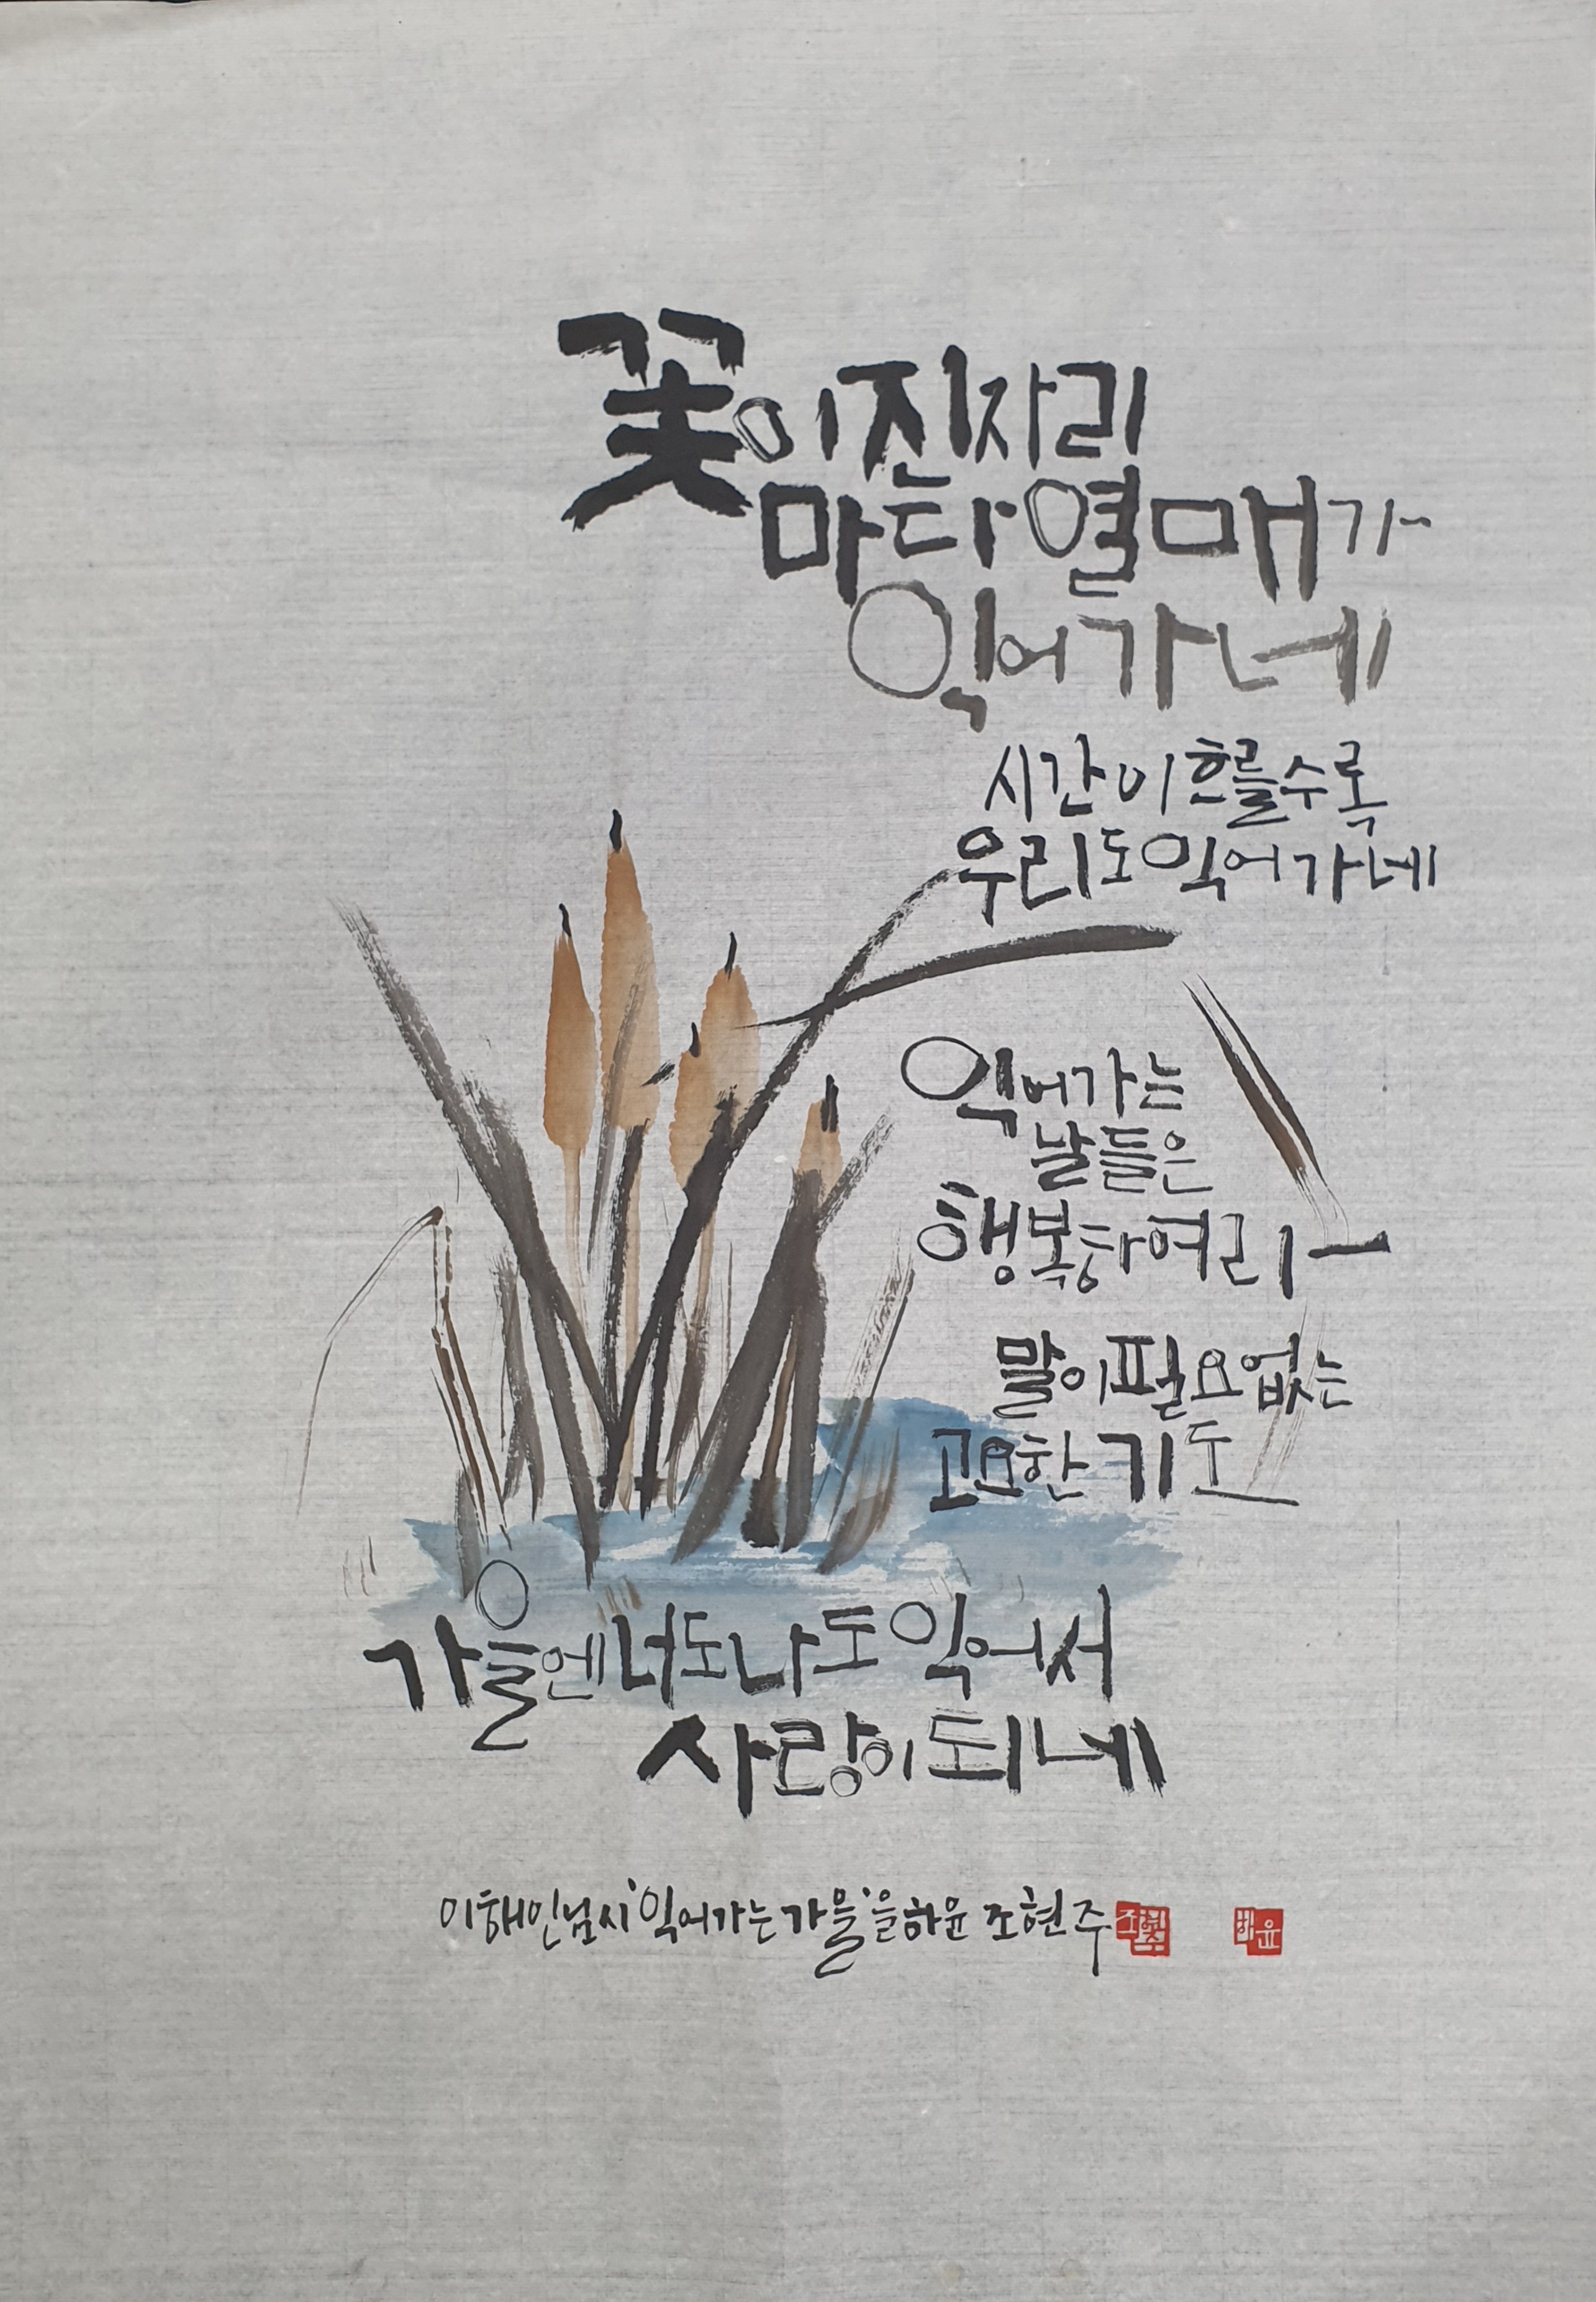 꽃이 진 자리
마다 열매가
익어가네
시간이 흐를수록
우리도 익어가네
익어가는
날들은
행복하여라
말이 필요없는
고요한 기도
가을엔 너도 나도 익어서
사랑이 되네
이해인님 시 '익어가는 가을'을 하윤 조현주
조현주
하윤